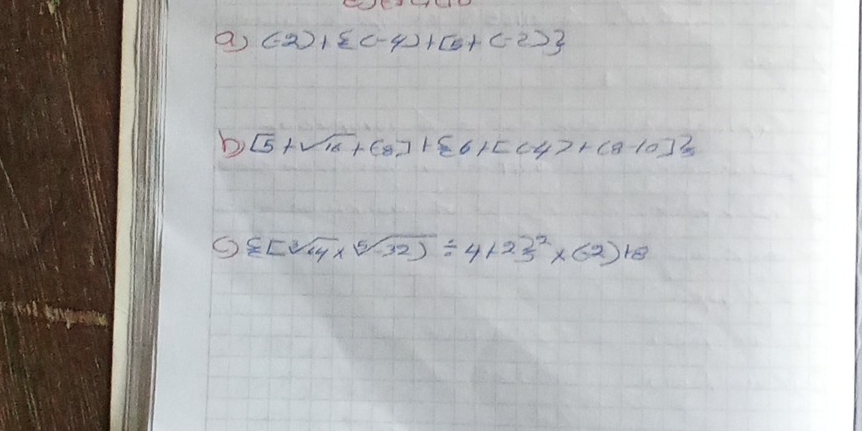 a) (-2)+{(-4)+[5+(-2)}
b) [5+√16+(8]+{6+[(-4)+(8-10]}
c) {[∛64×⁵√-32)÷4+2}²×(-2)+8